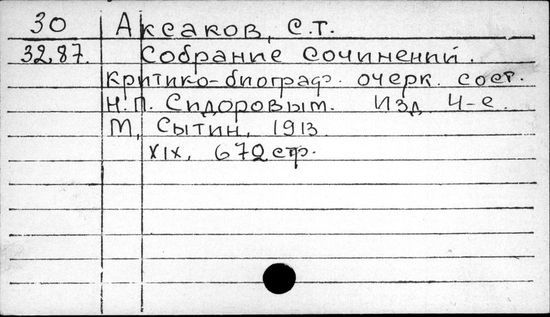 30 Аксаков, С.Т.
32.87. Собрание сочинений.
Критико-биограф. очерк сост.
Н.П. Сидоровым. Изд. 4-е.
М, Сытин, 1913.
XIX, 672 стр.